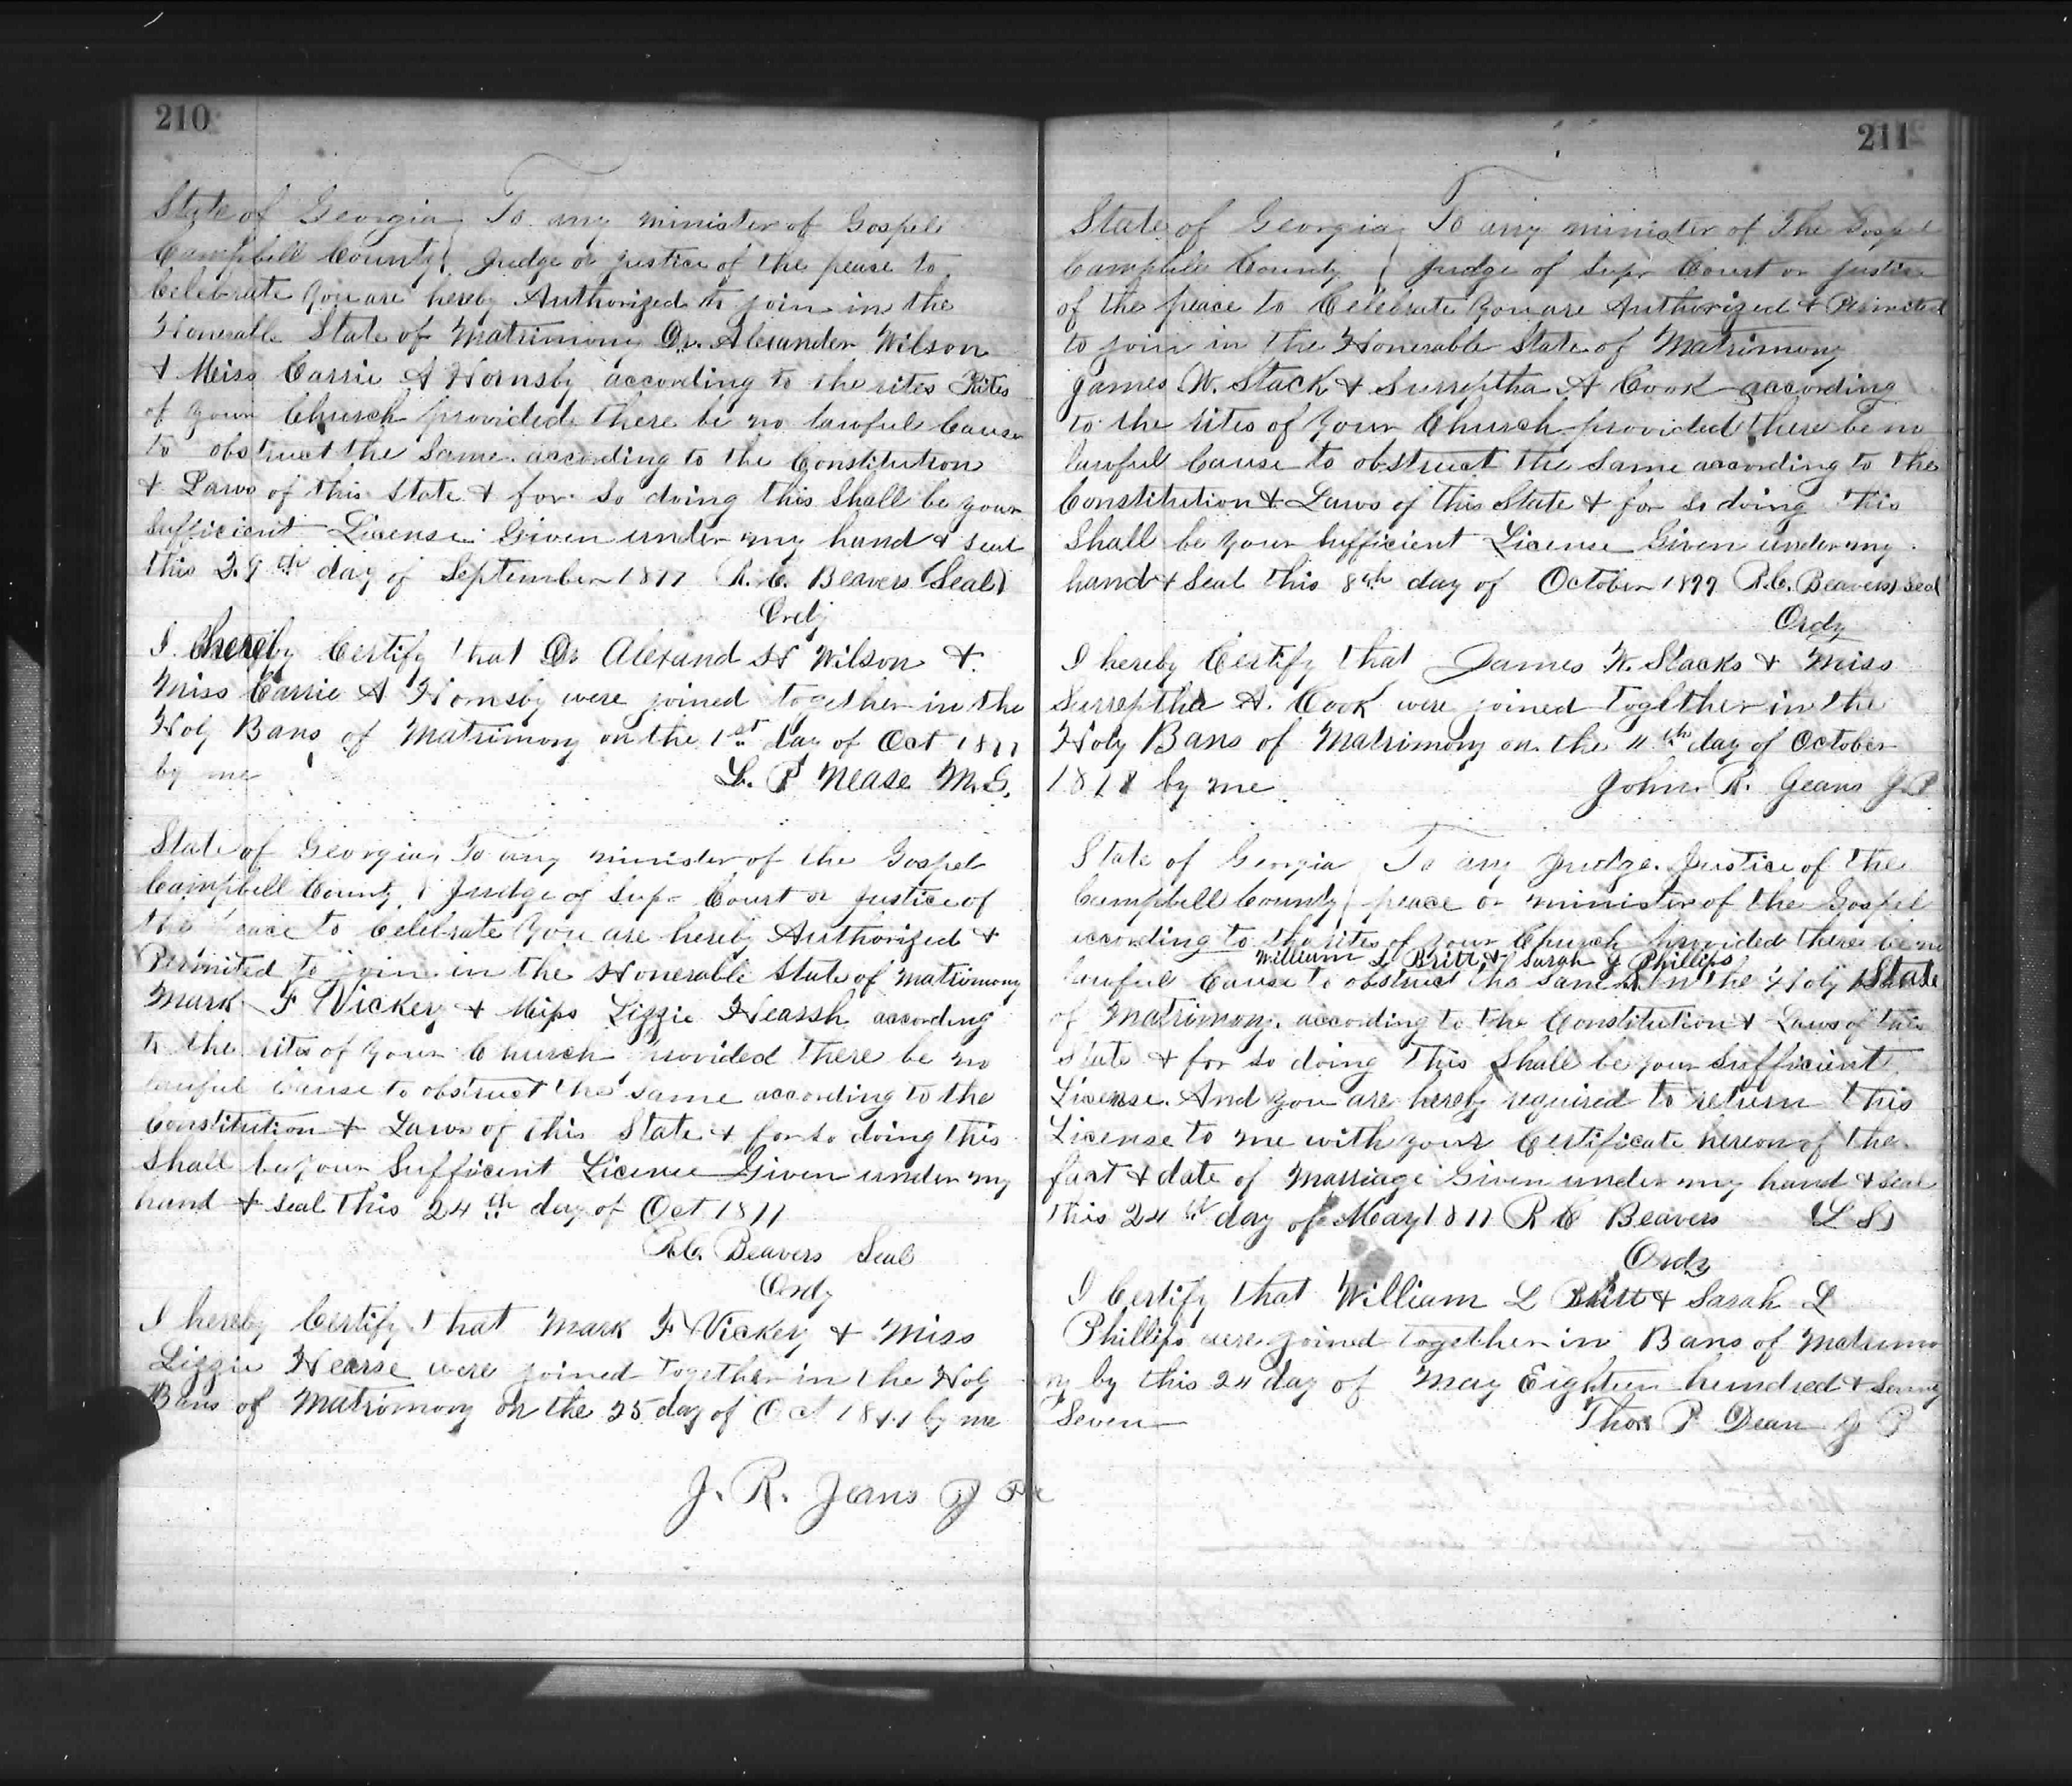 210
State of Georgia To any minister of Gospel
Campbell County Judge or justice of the pease to
Celebrate you are hereby Authorized to join in the
Honerable State of Matrimony Dr. Alexander Wilson
& Miss Carrie A Hornsby according to the rites Rites
of your Church provided there be no lawful Cause
to obstruct the Same according to the Constitution
& Laws of this State & for so doing this Shall be your
Sufficient License Given under my hand & seal
this 29th day of September 1877 R. C. Beavers (Seal)
Ordy
I hereby Certify that Dr Alexand H Wilson &
Miss Carrie A Hornsby were joined together in the
Holy Bans of Matrimony on the 1st day of Oct 1877
by me L. P Nease M.G.
State of Georgia To any minister of the Gospel
Campbell County Judge of Supr Court or justice of
the Peace to Celebrate You are hereby Authorized &
Permited to join in the Honerable State of matrimony
Mark F Vickey & Miss Lizzie Hearsh according
to the rites of your Church provided there be no
lawful Cause to obstruct the same according to the
Constitution & Laws of this State & for so doing this
Shall be your Sufficent License Given under my
hand & seal this 24th day of Oct 1877
R.C. Beavers Seal
Ordy
I hereby Certify that Mark F Vickey & Miss
Lizzie Hearse were joined together in the Holy
Bans of Matrimony on the 25 day of Oct 1877 by me
J. R. Jeans J P
211
State of Georgia To any minister of The Gospel
Campbell County Judge of Supr Court or justice
of the peace to Celebrate you are Authorized & Permited
to join in the Honerable State of Matrimony
James W. Stack & Surreptha A Cook according
to the rites of your Church provided there be no
lawful Cause to obstruct the same according to the
Constitution & Laws of this State & for so doing this
Shall be your sufficient License Given under my
hand & Seal this 8th day of October 1877 R.C. Beavers seal
Ordy
I hereby Certify that James W. Stacks & Miss
Surreptha A. Cook were joined together in the
Holy Bans of Matrimony on the 11th day of October
1878 by me John R. Jeans J P
State of Georgia To any Judge Justice of the
Campbell County peace or minister of the Gospel
according to the rites of your Church provided there be no
William L Britt & Sarah J Phillips
lawful Cause to obstruct the same in the Holy State
of Matrimony according to the Constitution & Laws of this
State & for so doing This Shall be your Sufficient
License. And you are hereby required to return this
License to me with your Certificate hereon of the
fact & date of Marriage Given under my hand & seal
this 24th day of May 1877 R C Beavers (L S)
Ordy
I Certify that William L Britt & Sarah L
Phillips were joined together in Bans of Matrimo
ny by this 24 day of May Eighteen hundred & Seventy
Seven Thos P Dean J P